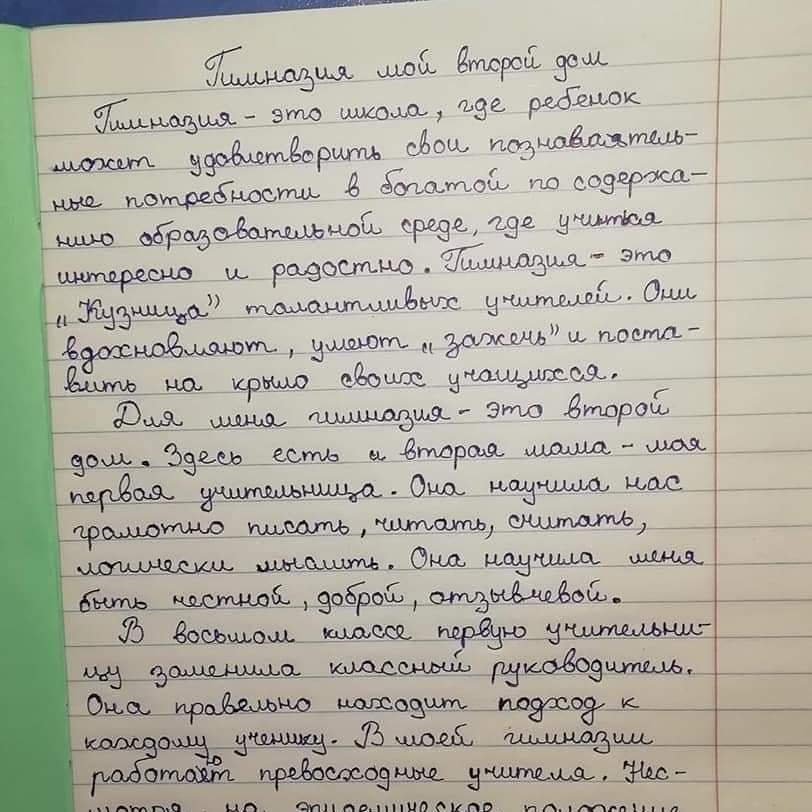 Гимназия мой второй дом
Гимназия - это школа, где ребенок
может удовлетворить свои познавательь-
ные потребности в богатой по содержа-
нию образовательной среде, где учиться
интересно и радостно. Гимназия - это
„Кузница” талантливых учителей. Они
вдохновляют, умеют „зажечь” и поста-
вить на крыло своих учащихся.
Для меня гимназия - это второй
дом. Здесь есть и вторая мама - моя
первая учительница. Она научила нас
грамотно писать, читать, считать,
логически мыслить. Она научила меня
быть честной, доброй, отзывчевой.
В восьмом классе первую учительни-
цу заменила классный руководитель.
Она правельно находит подход к
каждому ученику. В моей гимназии
работают превосходные учителя. Нес-
мотря на эпидемическое положение